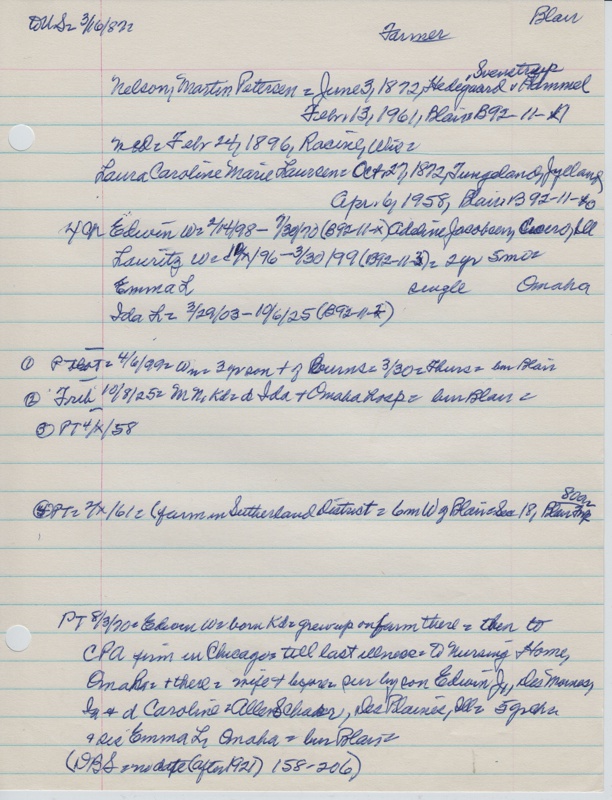 DUS= 3/16/82
Blair
Farmer
Svenstrup
Nelson, Martin Petersen = June 3, 1872, Hedegaard v Hammel
Febr. 13, 1961, Blair B92-11-
md = Febr 24, 1896, Racine, Wis =
Laura Caroline Marie Laursen = Oct 27, 1872, Jylland
Apr. 6, 1958, Blair B92-11-
4 ch Edwin W = 2/14/98 - 7/30/70 (B92-11-x) Adeline Jacobsen, Cicero, Ill
Lauritz W = /96 - 3/30/99 (B92-11-3) = 2yr 5mo =
Emma L single Omaha
Ida L = 3/29/03 - 10/6/25 (B92-11-x)
① = 4/6/99 = Wm = 3 yr son + of Burns = 3/30 = Thurs = bur Blair
② 10/8/25 = M N, Kd = d Ida + Omaha Hosp = bur Blair =
③ PT 4/x/58
80a
④ PT = 2/x/61 = (farm in Sutherland District = 6m W of Blair = Sec 18, Blair Twp
PT 8/3/70 = Edwin W = born Kd = grew up on farm there = then to
CPA firm in Chicago = till last illness = to Nursing Home,
Omaha = + there = wife + before = sur by son Edwin Jr, Des Moines,
Ia + d Caroline = Allen, Des Plaines, Ill = 5 grch
+ sis Emma L, Omaha = bur Blair =
(DBS = no date (after 1921) 158-206)